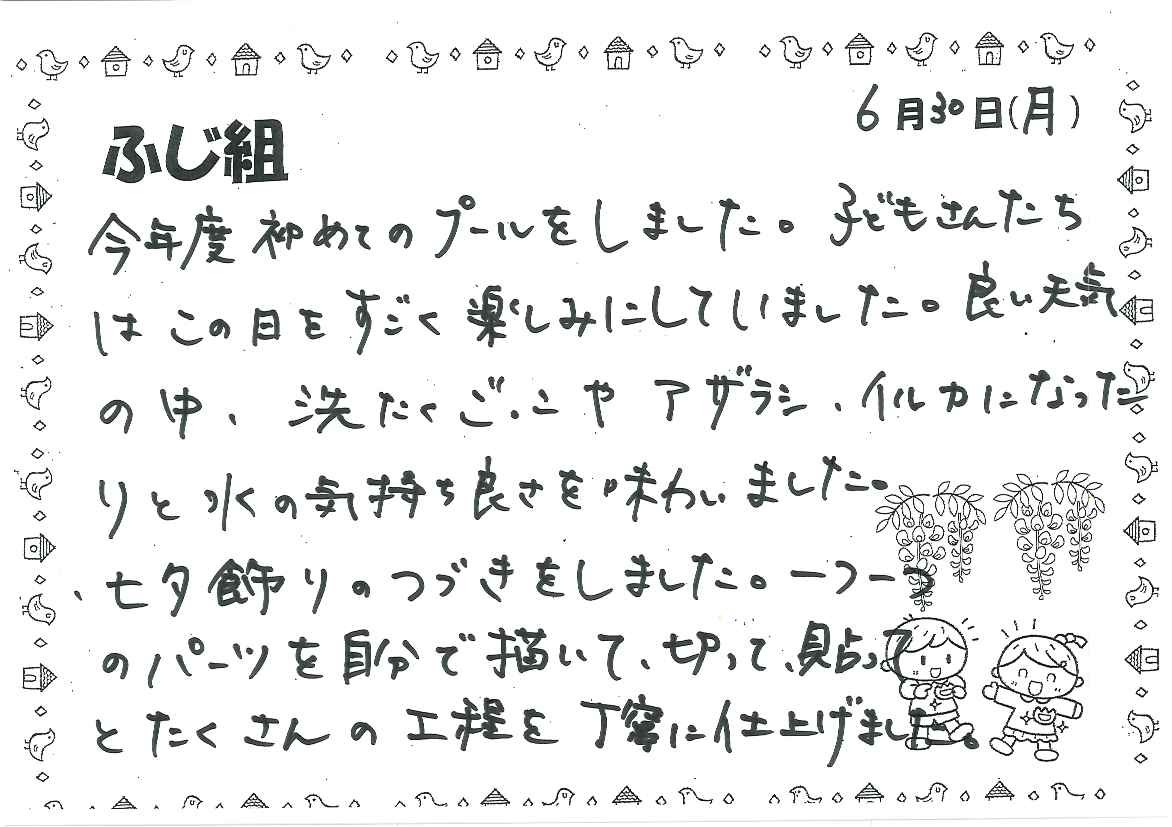 6月30日(月)
ふじ組
今年度初めてのプールをしました。子どもさんたち
はこの日をすごく楽しみにしていました。良い天気
の中、洗たくごっこやアザラシ、イルカになった
りと水の気持ち良さを味わいました。
、七夕飾りのつづきをしました。一つ一つ
のパーツを自分で描いて、切って、貼って
とたくさんの工程を丁寧に仕上げました。